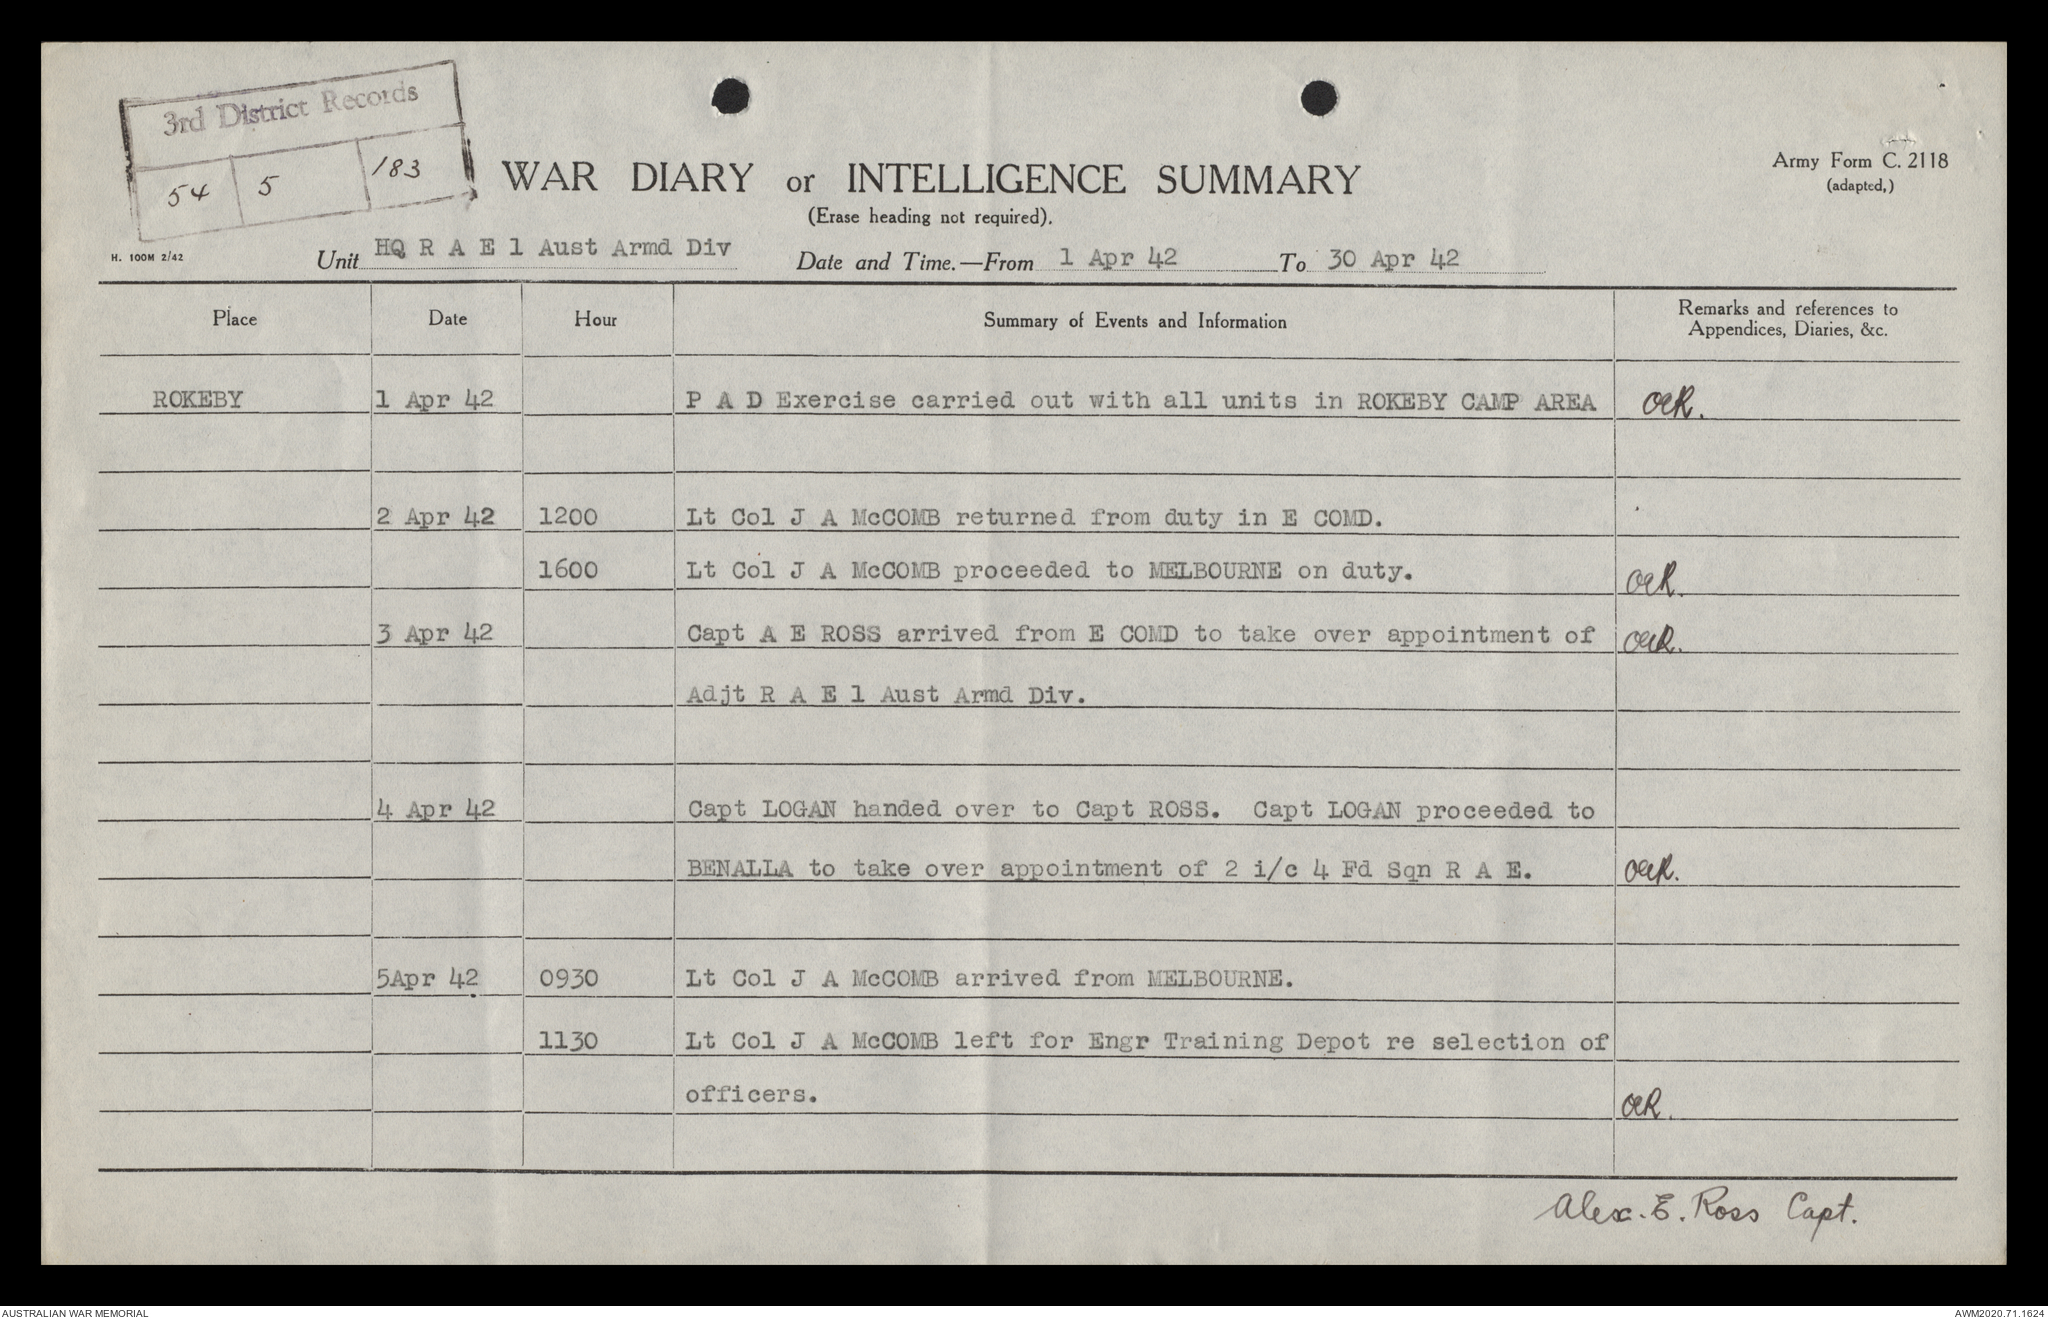 3rd District Records
54 5 183
WAR DIARY or INTELLIGENCE SUMMARY
(Erase heading not required).
Army Form C. 2118
(adapted,)
H. 100M 2/42
Unit HQ R A E 1 Aust Armd Div Date and Time.—From 1 Apr 42 To 30 Apr 42
Place Date Hour Summary of Events and Information Remarks and references to
Appendices, Diaries, &c.
ROKEBY 1 Apr 42 P A D Exercise carried out with all units in ROKEBY CAMP AREA AER.
2 Apr 42 1200 Lt Col J A McCOMB returned from duty in E COMD.
1600 Lt Col J A McCOMB proceeded to MELBOURNE on duty. AER.
3 Apr 42 Capt A E ROSS arrived from E COMD to take over appointment of AER.
Adjt R A E 1 Aust Armd Div.
4 Apr 42 Capt LOGAN handed over to Capt ROSS. Capt LOGAN proceeded to
BENALLA to take over appointment of 2 i/c 4 Fd Sqn R A E. AER.
5Apr 42 0930 Lt Col J A McCOMB arrived from MELBOURNE.
1130 Lt Col J A McCOMB left for Engr Training Depot re selection of
officers. AER.
Alex. E. Ross Capt.
AUSTRALIAN WAR MEMORIAL
AWM2020.71.1624